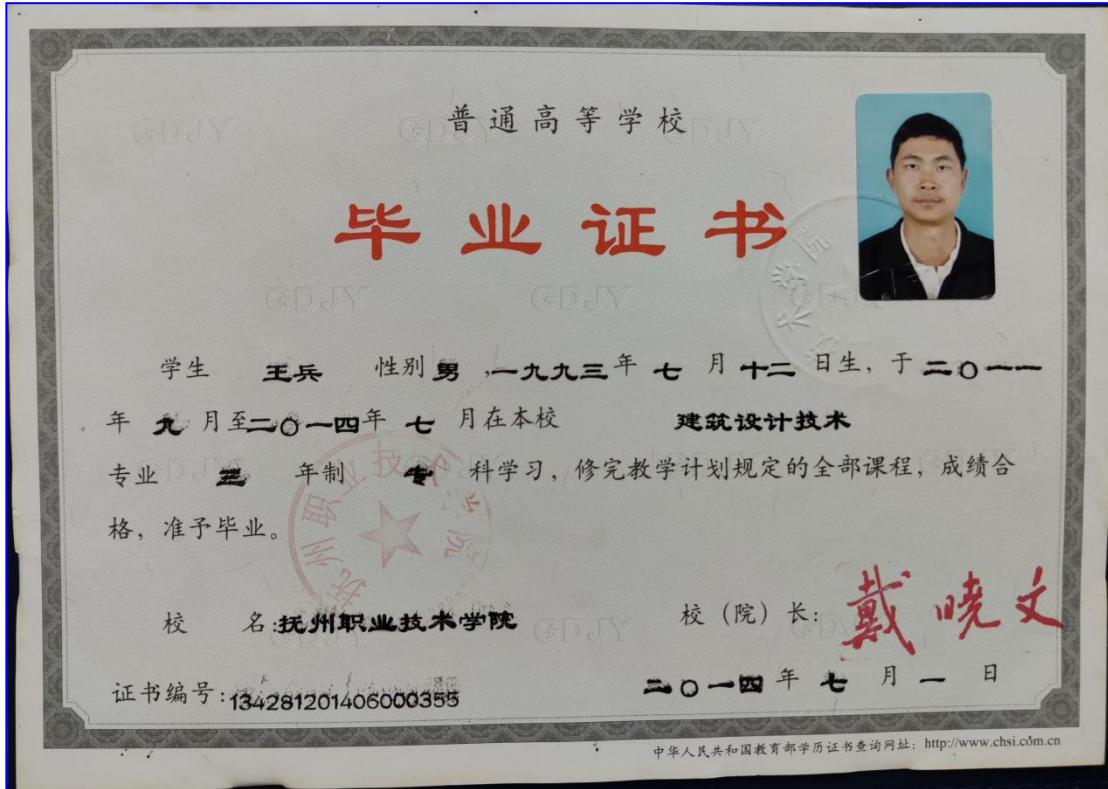 普通高等学校
毕业证书
学生 王兵 性别 男 ,一九九三年 七 月 十二 日生，于 二〇一一
年 九 月至二〇一四年 七 月在本校 建筑设计技术
专业 三 年制 专 科学习，修完教学计划规定的全部课程，成绩合
格，准予毕业。
校 名:抚州职业技术学院
校（院）长: 戴晓文
证书编号:134281201406000355
二〇一四 年 七 月 一 日
中华人民共和国教育部学历证书查询网址: http://www.chsi.com.cn
抚州职业技术学院